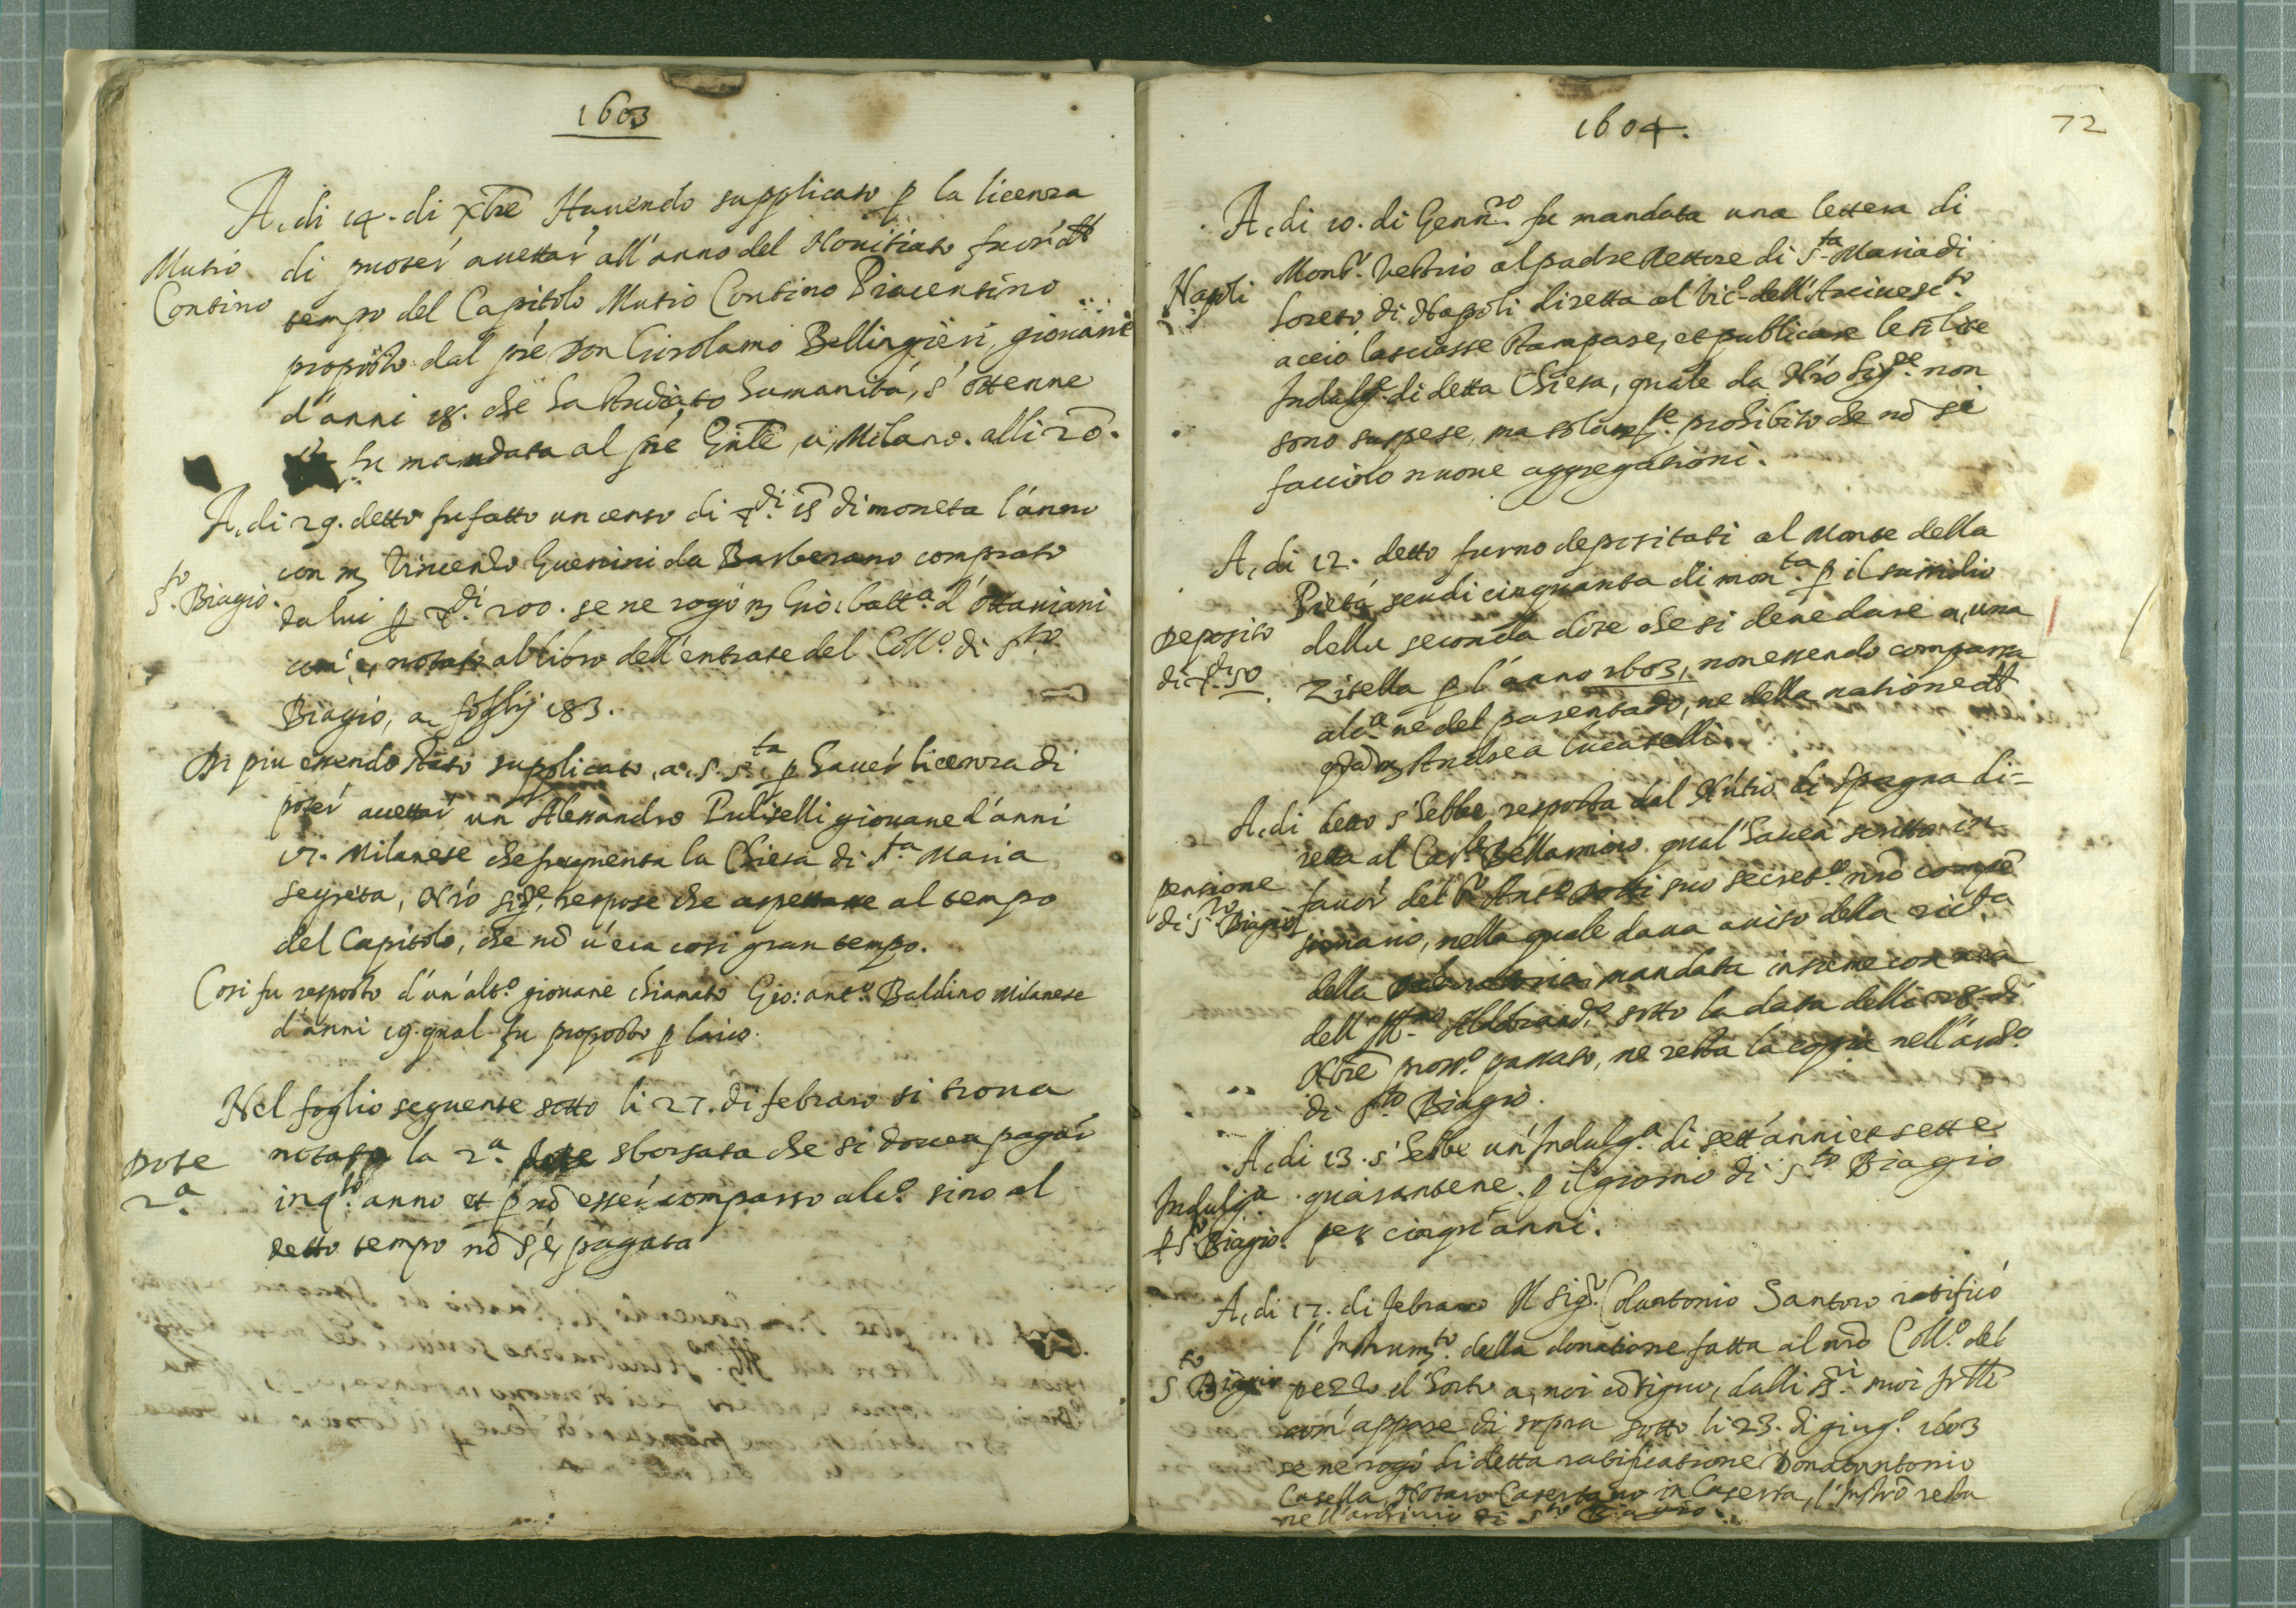 1603
A, di 14. di Xbre Havendo supplicato p la licenza
Mutio
Contino
di puoter accettar all'anno del Novitiato fuor d
tempo del Capitolo Mutio Contino Piacentino
proposto dal pre Don Girolamo Bellingieri, giovane
d'anni 18. che ha studiato humanità, s'ottenne
fu mandata al pre Gnle, a, Milano. alli 20.
A, di 29. detto fu fatto un censo di di 15 di moneta l'anno
con m Vincenzo Guerrini da Barberano comprato
S.to Biagio.
da lui p di 200. se ne rogò m Gio: batt.a d'Ottaviani
com'è, notato al libro dell'entrate del Coll.o di S.to
Biagio, a, foglij 183.
Di piu essendo stato supplicato, a, S. S.ta p haver licenza di
poter accettar un Alessandro Puliselli giovane d'anni
17. Milanese che frequenta la Chiesa di S.ta Maria
Segreta, Nro Sig.re respose che aspettasse al tempo
del Capitolo, che nō v'era così gran tempo.
Così fu resposto d'un'alt.o giovane chiamato Gio: ant.o Baldino Milanese
d'anni 19. qual fu proposto p laico.
Nel foglio seguente sotto li 27. di febraro si trova
Dote
2.a
notato la 2.a dote sborsata che si doveva pagar
in q.to anno et p nō esser comparso alc.o sino al
detto tempo nō s'è, pagata
1604.
72
A, di 10. di Genn.ro fu mandata una lettera di
Napoli
Mons.r Vestrio al padre Rettore di S.ta Maria di
Loreto di Napoli diretta al Vic.o dell'Arcivesc.to
acciò lasciasse stampare, et publicare le solite
Indulg.e di detta Chiesa, quale da Nro Sig.re non
sono suspese, ma solam.te prohibito che nō si
faccino nuove aggregationi.
A, di 12. detto furno depositati al Monte della
Deposito
di 50
Pietà scudi cinquanta di mon.ta p il sussidio
della seconda dote che si deve dare a, una
Zitella p l'anno 1603, non essendo comparsa
alc.a ne del parentado, ne della natione d
qdam Andrea Lucatelli.
A, di detto s'hebbe resposta dal Nutio di Spagna di-
retta al Car.le Bellarmino qual'havea scritto in
pensione
di S.to Biagio
favor del suo secret.o nro
sionario, nella quale dava aviso della ric.ta
della mandata insieme con una
dell'Ill.mo Aldobrand.o sotto la data delli 28. di
Xbre pross.o passato, ne resta la copia nell'arch.o
di S.to Biagio.
A, di 13. s'hebbe un'Indulg.a di sett'anni et sette
Indulg.a
p S.to Biagio.
quarantene p il giorno di S.to Biagio
per cinqu'anni.
A, di 17. di febraro Il Sig.r Colantonio Santoro ratificò
S.to Biagio
l'Instrum.to della donatione fatta al nro Coll.o del
pezzo d'horto a, noi cōtiguo, dalli SS.ri suoi frlli
com'appare di sopra sotto li 23. di giug.o 1603
se ne rogò di detta ratificatione Donatantonio
Casella, Notaro Casertano in Caserta, l'Instro resta
nell'archivio di S.to Biagio.